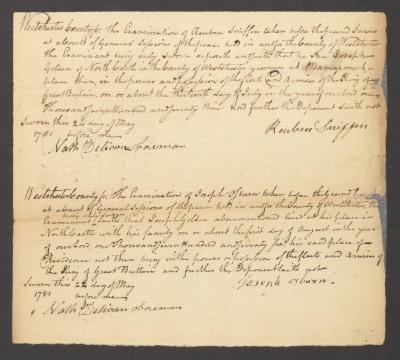 Westchester County ss: The Examination of Reuben Sniffen taken before the grand Jurors
at a Court of General Sessions of the peace held in and for the County of Westchester
the Examinant being duly Sworn deposeth and saith that he Saw Joseph
Golden of North Castle in the County of Westchester yeoman at Mamaroneck a
place then in the power and possession of the fleets and Armies of the King of
Great Brittain, on or about the thirteenth day of July in the year of our Lord one
Thousand seven Hundred and seventy Nine And further the Deponent Saith not
Sworn this 24 day of May
1781 before me
Reuben Sniffen
Nathl Delivan Foreman
Westchester County ss: The Examination of Joseph Osburn taken before the grand Jurors
at a Court of General Sessions of the peace held in and for the County of Westchester, the
Examinant being duly Sworn saith that Joseph Golden abovementioned lived at his place in
North Castle with his family on or about the first day of August in the year
of our Lord one Thousand Seven Hundred and seventy his said place of
Residence not then being in the power or possession of the fleets and Armies of
the King of Great Brittain and further the Deponent saith not
Sworn this 24 day of May
1781 before me
Joseph Osburn
Nathl Delivan Foreman